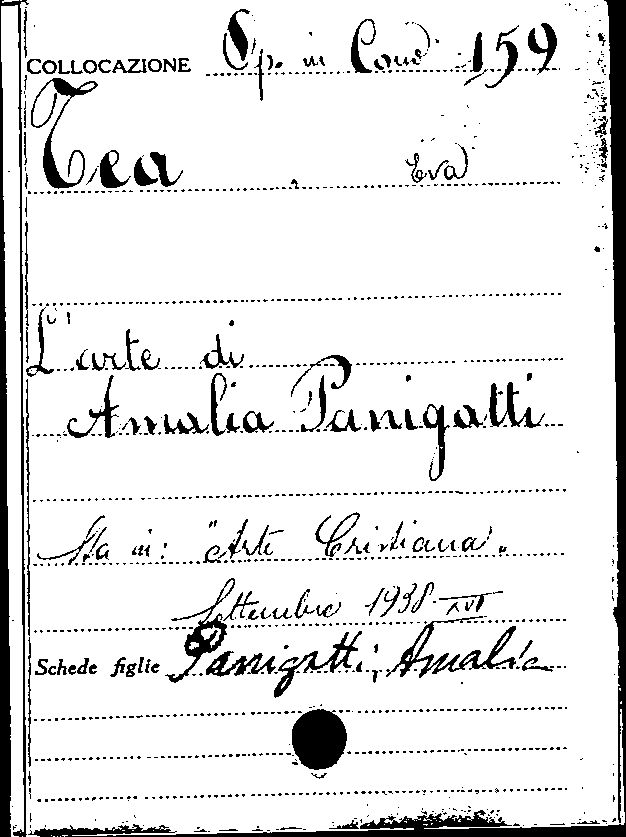 COLLOCAZIONE Op. in Cons. 159
Tea Eva
L'arte di
Amalia Panigatti
Sta in: "Arte Cristiana"
Settembre 1938-XVI
Schede figlie Panigatti, Amalia